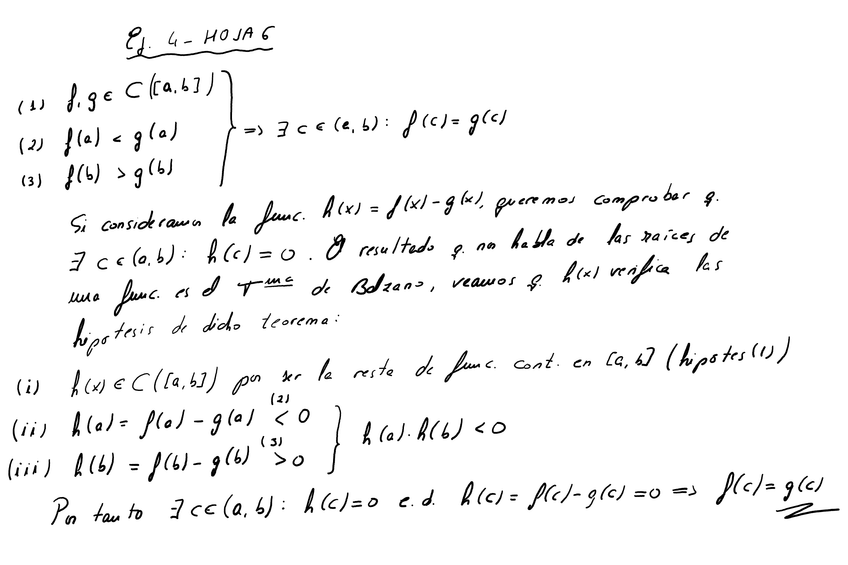 Ej. 4 - HOJA 6
(1) f, g ∈ C([a,b])
(2) f(a) < g(a)
(3) f(b) > g(b)
=> ∃ c ∈ (a,b) : f(c) = g(c)
Si consideramos la func. h(x) = f(x) - g(x), queremos comprobar q.
∃ c ∈ (a,b) : h(c) = 0 . El resultado q. nos habla de las raíces de
una func. es el Tma de Bolzano, veamos q. h(x) verifica las
hipotesis de dicho teorema:
(i) h(x) ∈ C([a,b]) por ser la resta de func. cont. en [a,b] (hipotes(1))
(ii) h(a) = f(a) - g(a) <^(2) 0
(iii) h(b) = f(b) - g(b) >^(3) 0
h(a) . h(b) < 0
Por tanto ∃ c ∈ (a,b) : h(c) = 0 e.d. h(c) = f(c) - g(c) = 0 => f(c) = g(c)